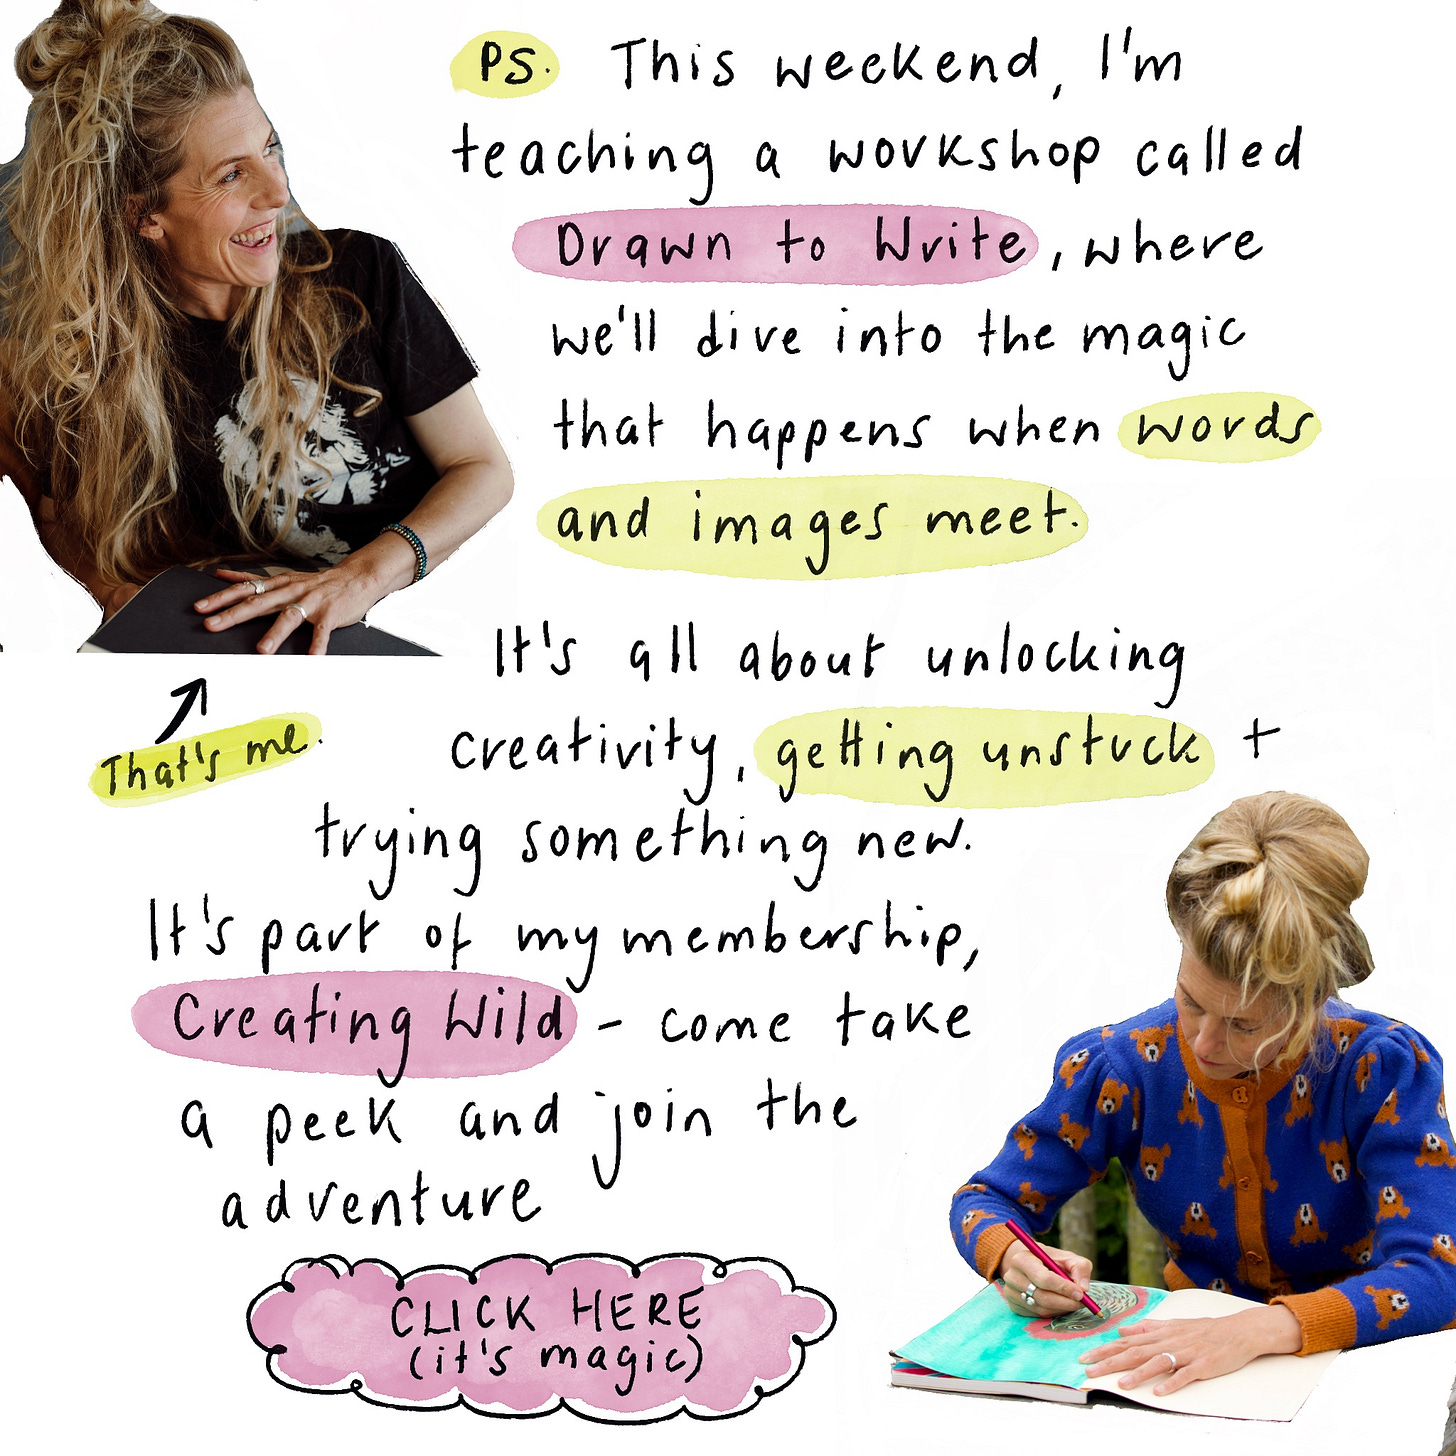 PS. This weekend, I'm
teaching a workshop called
Drawn to Write, where
we'll dive into the magic
that happens when words
and images meet.
It's all about unlocking
creativity, getting unstuck +
That's me.
trying something new.
It's part of my membership,
Creating Wild - come take
a peek and join the
adventure
CLICK HERE
(it's magic)